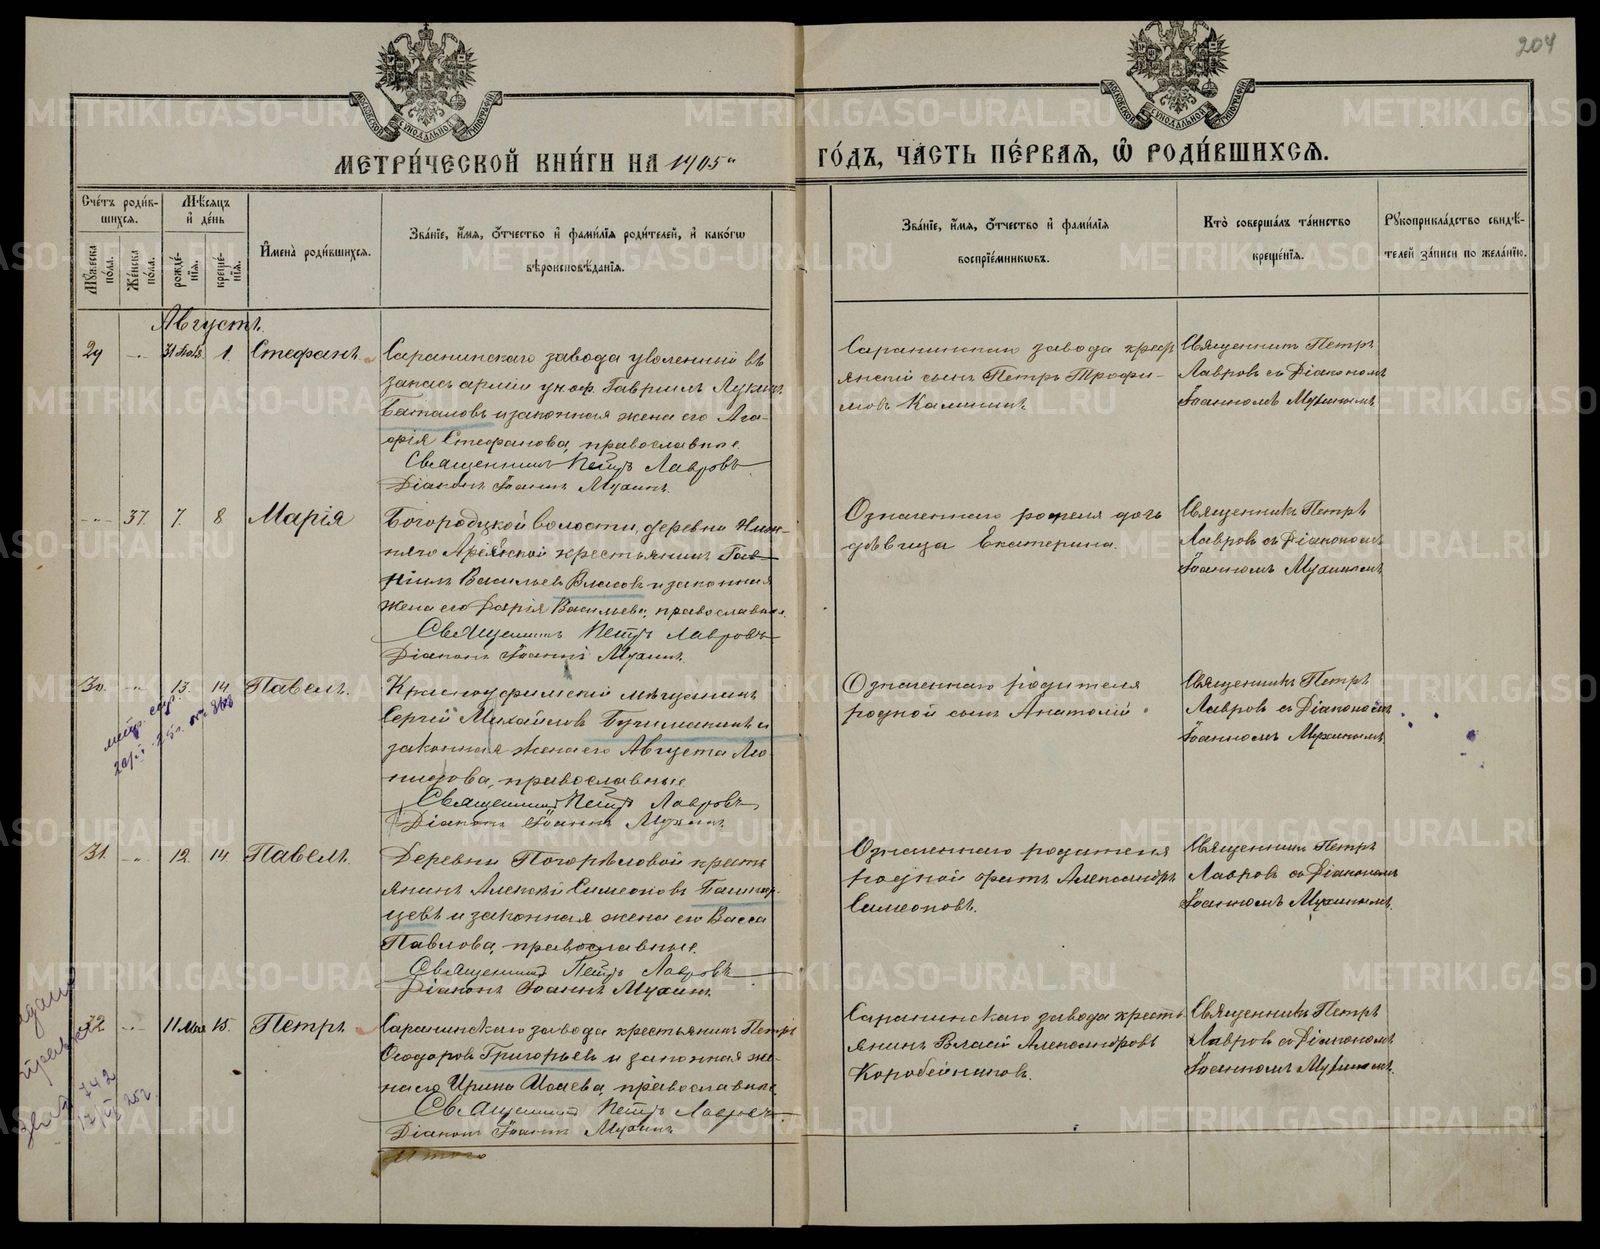 204
МОСКОВСКОЙ СѴНОДАЛЬНОЙ ТИПОГРАФІИ
МОСКОВСКОЙ СѴНОДАЛЬНОЙ ТИПОГРАФІИ
МЕТРИ́ЧЕСКОЙ КНИ́ГИ НА 1905 го́дъ, ча́сть пе́рваѧ, ѡ҆ роди́вшихсѧ.
Сче́тъ роди́вшихсѧ.
Мꙋ́жеска по́ла.
Же́нска по́ла.
Мѣ́сѧцъ и҆ де́нь
рожде́нїѧ.
креще́нїѧ.
И҆мена̀ роди́вшихсѧ.
Зва́нїе, и҆́мѧ, ѻ҆́тчество и҆ фами́лїѧ роди́телей, и҆ како́гѡ
вѣроисповѣ́данїѧ.
Зва́нїе, и҆́мѧ, ѻ҆́тчество и҆ фами́лїѧ
воспрїе́мникѡвъ.
Кто̀ соверша́лъ та́инство
креще́нїѧ.
Рꙋкоприкла́дство свидѣ́-
телей за́писи по жела́нїю.
Августъ.
29 31 Іюля 1. Стефанъ.
Саранинскаго завода уволенный въ
запасъ арміи ун. оф. Гавріилъ Лукинъ
Баталовъ и законная жена его Ага-
фія Стефанова, православные.
Священникъ Петръ Лавровъ
Діаконъ Іоаннъ Мухинъ.
Саранинскаго завода крестьянскій сынъ Петръ Трофи-
мовъ Калининъ
Священникъ Петръ
Лавровъ съ Діакономъ
Іоанномъ Мухинымъ
37. 7. 8. Марія
Богородцкой волости, деревни Ниж-
няго Арейской крестьянинъ Гав-
ріилъ Васильевъ Власовъ и законная
жена его Дарія Васильева, православные.
Священникъ Петръ Лавровъ
Діаконъ Іоаннъ Мухинъ.
Означеннаго родителя дочь
дѣвица Екатерина.
Священникъ Петръ
Лавровъ съ Діакономъ
Іоанномъ Мухинымъ
30. 13. 14. Павелъ.
Красноуфимскій мѣщанинъ
Сергій Михайловъ и
законная жена его Августа Лео-
нидова, православные
Священникъ Петръ Лавровъ
Діаконъ Іоаннъ Мухинъ
Означеннаго родителя
родной сынъ Анатолій
Священникъ Петръ
Лавровъ съ Діакономъ
Іоанномъ Мухинымъ
31. 12. 14. Павелъ.
Деревни Погорѣловой кресть
янинъ Алексій Симеоновъ
и законная жена его Васса
Павлова, православные.
Священникъ Петръ Лавровъ
Діаконъ Іоаннъ Мухинъ.
Означеннаго родителя
родной братъ Александръ
Симеоновъ.
Священникъ Петръ
Лавровъ съ Діакономъ
Іоанномъ Мухинымъ.
32. 11 15. Петръ
Саранинскаго завода крестьянинъ Петръ
Ѳеодоровъ Григорьевъ и законная же-
на его Ирина Исаева, православные.
Священникъ Петръ Лавровъ
Діаконъ Іоаннъ Мухинъ
Саранинскаго завода кресть
янинъ Власій Александровъ
Коробейниковъ.
Священникъ Петръ
Лавровъ съ Діакономъ
Іоанномъ Мухинымъ.
Итого
METRIKI.GASO-URAL.RU